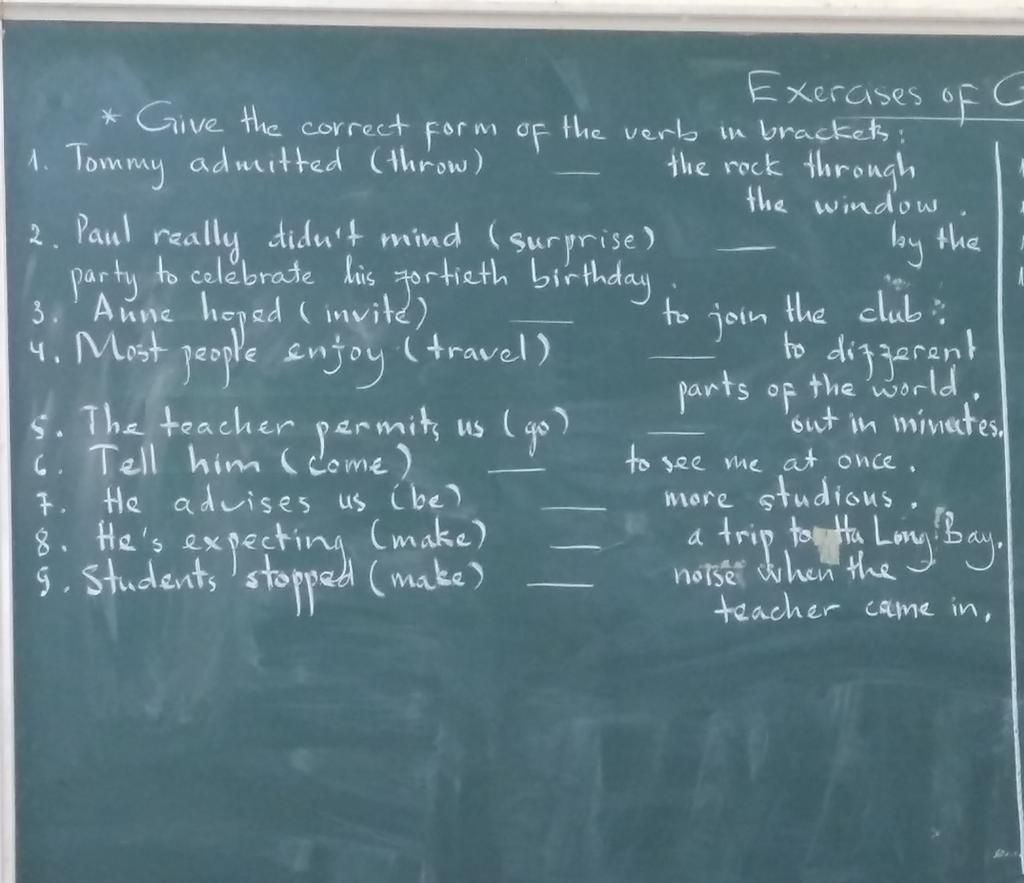 Exercises of G
* Give the correct form of the verb in brackets:
1. Tommy admitted (throw) ___ the rock through
the window.
2. Paul really didn't mind (surprise) ___ by the
party to celebrate his fortieth birthday.
3. Anne hoped (invite) ___ to join the club.
4. Most people enjoy (travel) ___ to different
parts of the world.
5. The teacher permits us (go) ___ out in minutes.
6. Tell him (come) ___ to see me at once.
7. He advises us (be) ___ more studious.
8. He's expecting (make) ___ a trip to Ha Long Bay.
9. Students stopped (make) ___ noise when the
teacher came in.